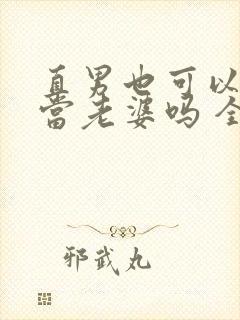 直男也可以
当老婆吗 全
邪武丸